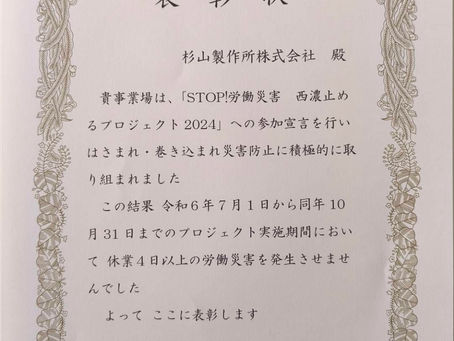 表彰状
杉山製作所株式会社 殿
貴事業場は、「STOP!労働災害 西濃止め
るプロジェクト2024」への参加宣言を行い
はさまれ・巻き込まれ災害防止に積極的に取
り組まれました
この結果 令和6年7月1日から同年10
月31日までのプロジェクト実施期間におい
て 休業4日以上の労働災害を発生させませ
んでした
よって ここに表彰します